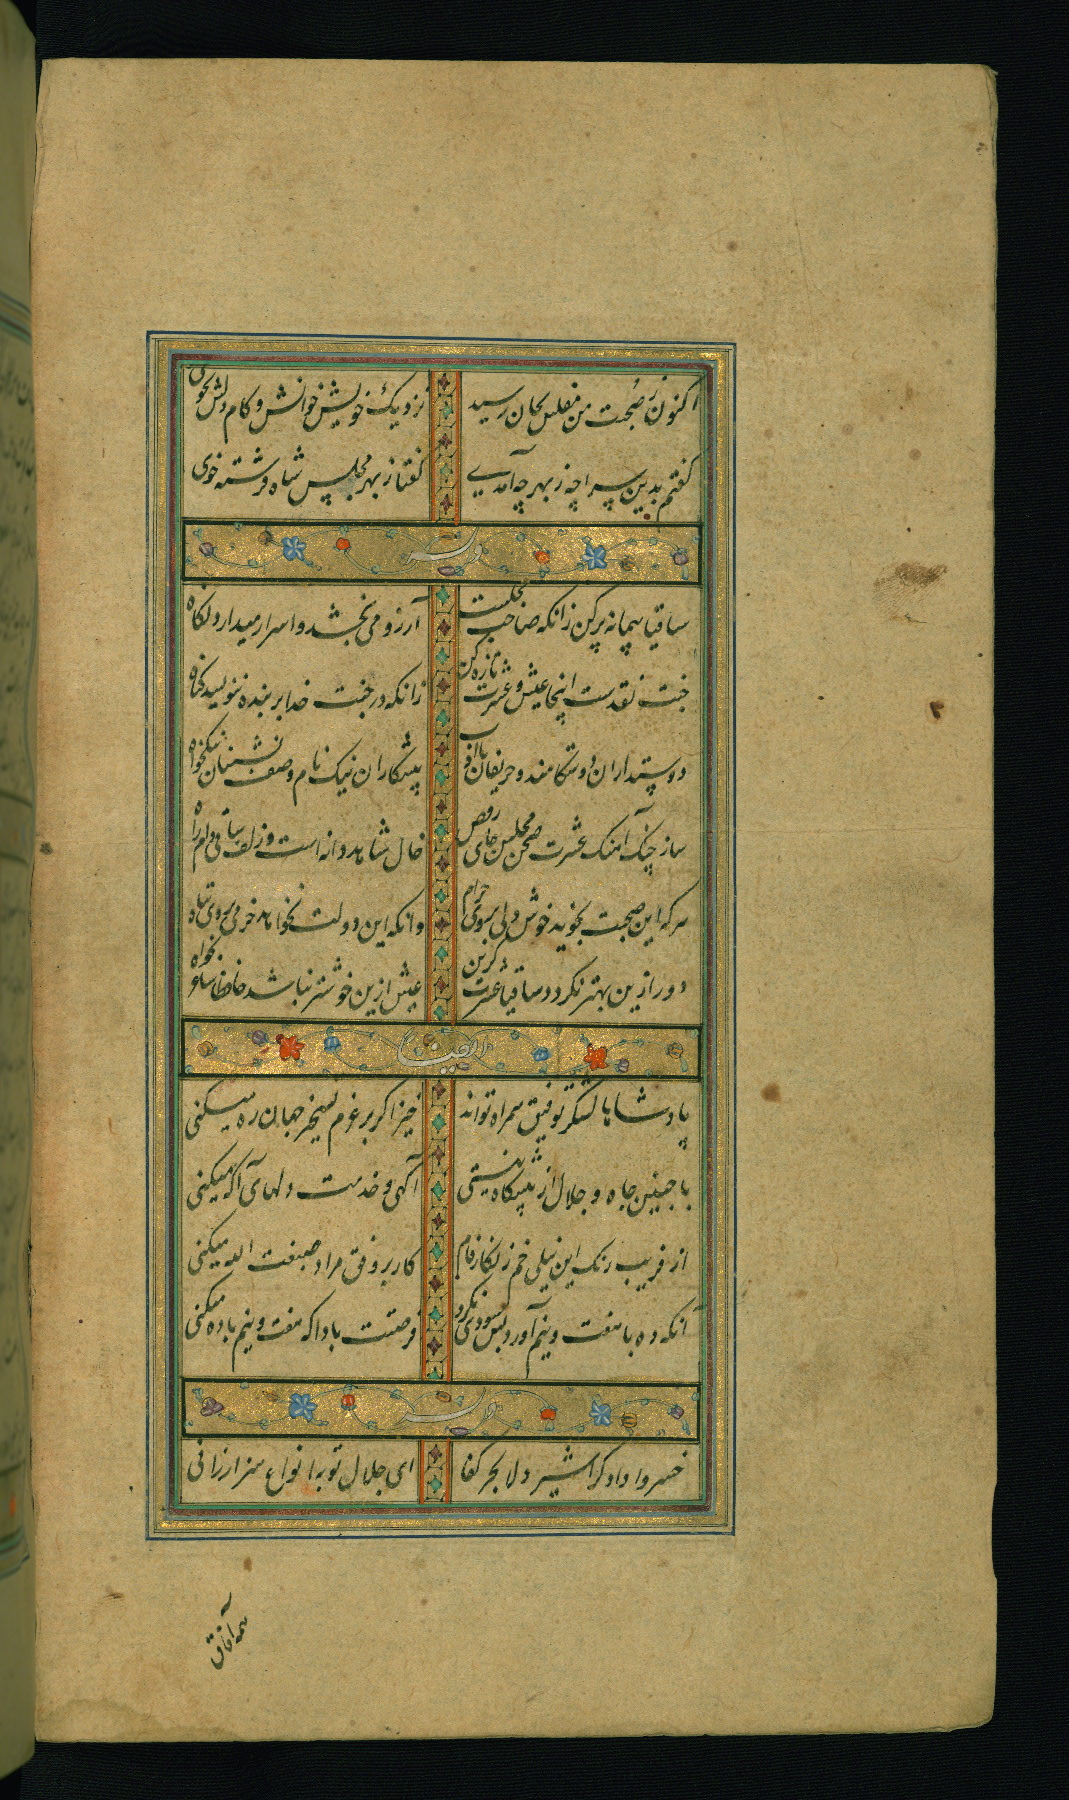 اکنون ز صحبت من مفلس بجان رسید نزدیک خویش خوانش و کام دلش بجوی
گفتم بدین سراچه ز بهر چه آمدی گفتا ز بهر مجلس شاه فرشته خوی
وله
ساقیا پیمانه پر کن زانکه صاحب مجلست آرزو می بخشد و اسرار میدارد نگاه
جنت نقدست اینجا عیش و عشرت تازه کن زانکه در جنت خدا بر بنده ننویسد گناه
دوستداران دوستکامند و حریفان با ادب پیشکاران نیک نام و صف نشینان نیکخواه
ساز چنگ آهنگ عشرت صحن مجلس جای رقص خال شاهد دانه است و زلف ساقی دام راه
هر که این صحبت بجوید خوش دلی بر وی حرام وانکه این دولت نخواهد خرمی بر وی تباه
دور ازین بهتر نگردد ساقیا عشرت گزین عیش ازین خوشتر نباشد حافظا ساغر بخواه
ایضا
پادشاها لشکر توفیق همراه تواند خیز اگر بر عزم تسخیر جهان ره میکنی
با چنین جاه و جلال از پیشگاه نیستی آگهی و خدمت دلهای آگه میکنی
از فریب رنک این نیلی خم زنگار فام کار بر وفق مراد صبغت الله میکنی
آنکه ده با هفت و نیم آورد بس سودی نکرد فرصتت بادا که هفت و نیم با ده میکنی
وله
خسروا دادگرا شیر دلا بحر کفا ای جلال تو به انواع هنر ارزانی
همه آفاق